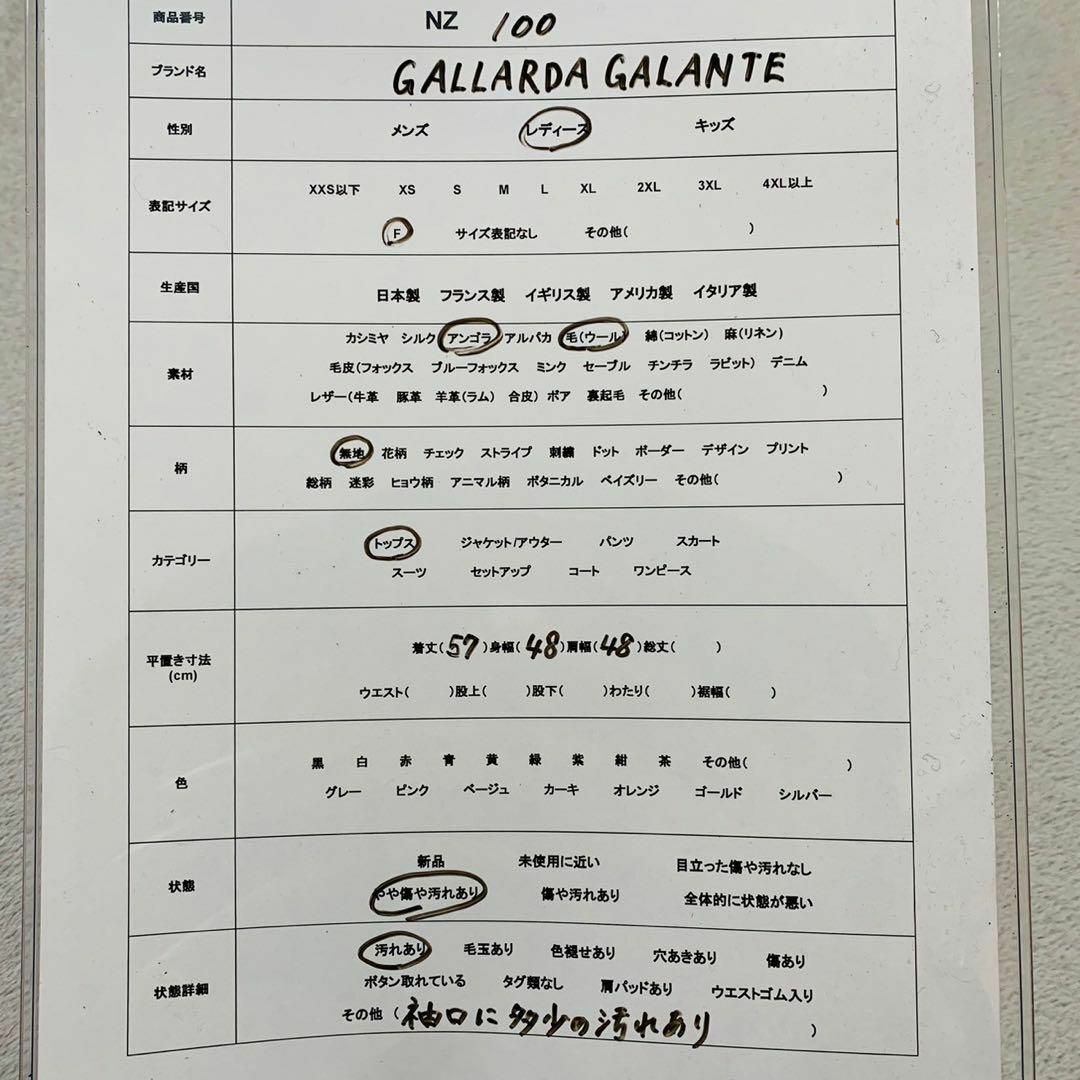 商品番号 NZ 100
ブランド名 GALLARDA GALANTE
性別 メンズ レディース キッズ
表記サイズ XXS以下 XS S M L XL 2XL 3XL 4XL以上
F サイズ表記なし その他( )
生産国 日本製 フランス製 イギリス製 アメリカ製 イタリア製
素材 カシミヤ シルク アンゴラ アルパカ 毛(ウール) 綿(コットン) 麻(リネン)
毛皮(フォックス ブルーフォックス ミンク セーブル チンチラ ラビット) デニム
レザー(牛革 豚革 羊革(ラム) 合皮) ボア 裏起毛 その他( )
柄 無地 花柄 チェック ストライプ 刺繍 ドット ボーダー デザイン プリント
総柄 迷彩 ヒョウ柄 アニマル柄 ボタニカル ペイズリー その他( )
カテゴリー トップス ジャケット/アウター パンツ スカート
スーツ セットアップ コート ワンピース
平置き寸法 着丈(57)身幅(48)肩幅(48)総丈( )
(cm) ウエスト( )股上( )股下( )わたり( )裾幅( )
色 黒 白 赤 青 黄 緑 紫 紺 茶 その他( )
グレー ピンク ベージュ カーキ オレンジ ゴールド シルバー
状態 新品 未使用に近い 目立った傷や汚れなし
やや傷や汚れあり 傷や汚れあり 全体的に状態が悪い
状態詳細 汚れあり 毛玉あり 色褪せあり 穴あきあり 傷あり
ボタン取れている タグ類なし 肩パッドあり ウエストゴム入り
その他 (袖口に多少の汚れあり )